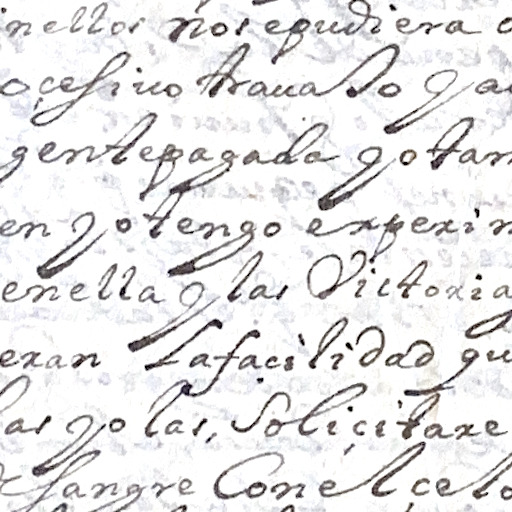 inellos nosepudiera
oçesiuo trauaxo y
gentepagada yotan
en yo tengo experim
enella y las Victoria
eran La facilidad qu
las yo las, Soliçitare
sangre Con el çelo